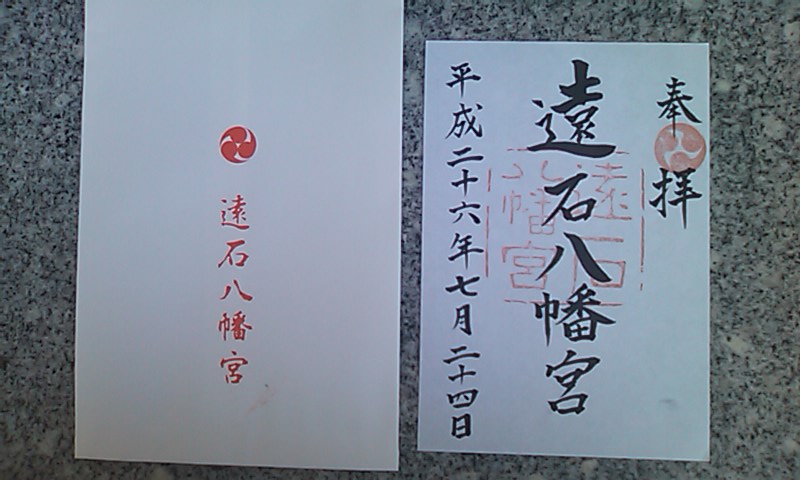 遠石八幡宮
奉拝
遠石八幡宮
遠石
八幡宮
平成二十六年七月二十四日